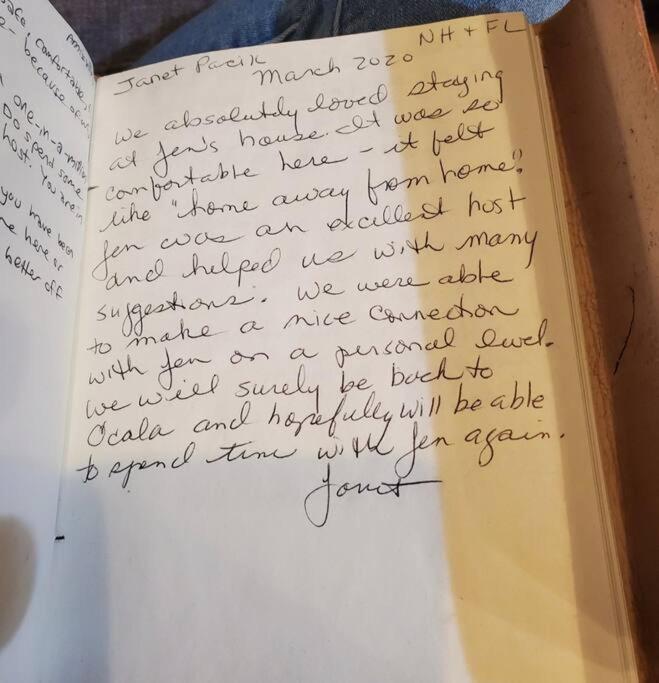 ace, comfortable,
e - because of
one-in-a-
Do spend some
host. You are
you have been
me here or
better off
Janet Pacik
NH + FL
March 2020
we absolutely loved staying
at Jen's house. It was so
comfortable here - it felt
like "home away from home".
Jen was an excellent host
and helped us with many
suggestions. We were able
to make a nice connection
with Jen on a personal level.
We will surely be back to
Ocala and hopefully will be able
to spend time with Jen again.
Janet